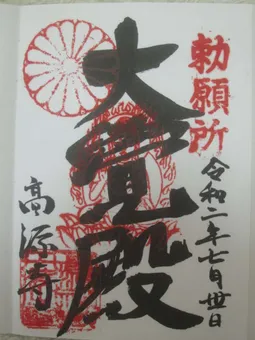 勅願所
令和二年七月卅日
大覚殿
高源寺